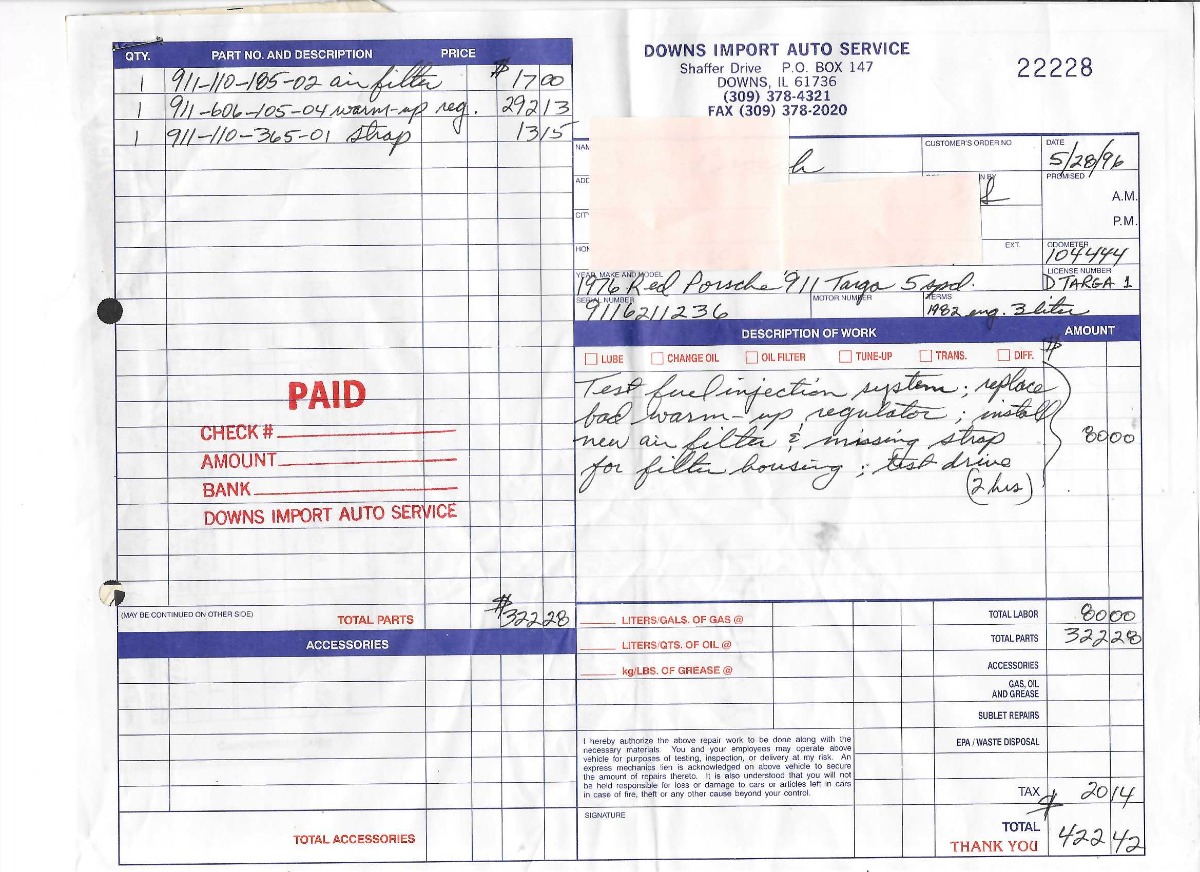 QTY. PART NO. AND DESCRIPTION PRICE
1 911-110-185-02 air filter $ 17 00
1 911-606-105-04 warm-up reg. 292 13
1 911-110-365-01 strap 13 15
PAID
CHECK #
AMOUNT
BANK
DOWNS IMPORT AUTO SERVICE
(MAY BE CONTINUED ON OTHER SIDE) TOTAL PARTS $ 322 28
ACCESSORIES
TOTAL ACCESSORIES
DOWNS IMPORT AUTO SERVICE
Shaffer Drive P.O. BOX 147
DOWNS, IL 61736
(309) 378-4321
FAX (309) 378-2020
22228
CUSTOMER'S ORDER NO DATE
5/28/96
PROMISED
A.M.
P.M.
EXT. ODOMETER
104444
YEAR, MAKE AND MODEL LICENSE NUMBER
1976 Red Porsche '911 Targa 5 spd. D TARGA 1
SERIAL NUMBER MOTOR NUMBER TERMS
9116211236 1982 eng. 3 liter
DESCRIPTION OF WORK AMOUNT
LUBE CHANGE OIL OIL FILTER TUNE-UP TRANS. DIFF. $
Test fuel injection system; replace
bad warm-up regulator; install
new air filter & missing strap 80 00
for filter housing; test drive
(2 hrs)
LITERS/GALS. OF GAS @ TOTAL LABOR 80 00
LITERS/QTS. OF OIL @ TOTAL PARTS 322 28
kg/LBS. OF GREASE @ ACCESSORIES
GAS, OIL
AND GREASE
SUBLET REPAIRS
EPA / WASTE DISPOSAL
I hereby authorize the above repair work to be done along with the
necessary materials. You and your employees may operate above
vehicle for purposes of testing, inspection, or delivery at my risk. An
express mechanics lien is acknowledged on above vehicle to secure
the amount of repairs thereto. It is also understood that you will not
be held responsible for loss or damage to cars or articles left in cars
in case of fire, theft or any other cause beyond your control.
SIGNATURE
TAX 20 14
TOTAL $ 422 42
THANK YOU